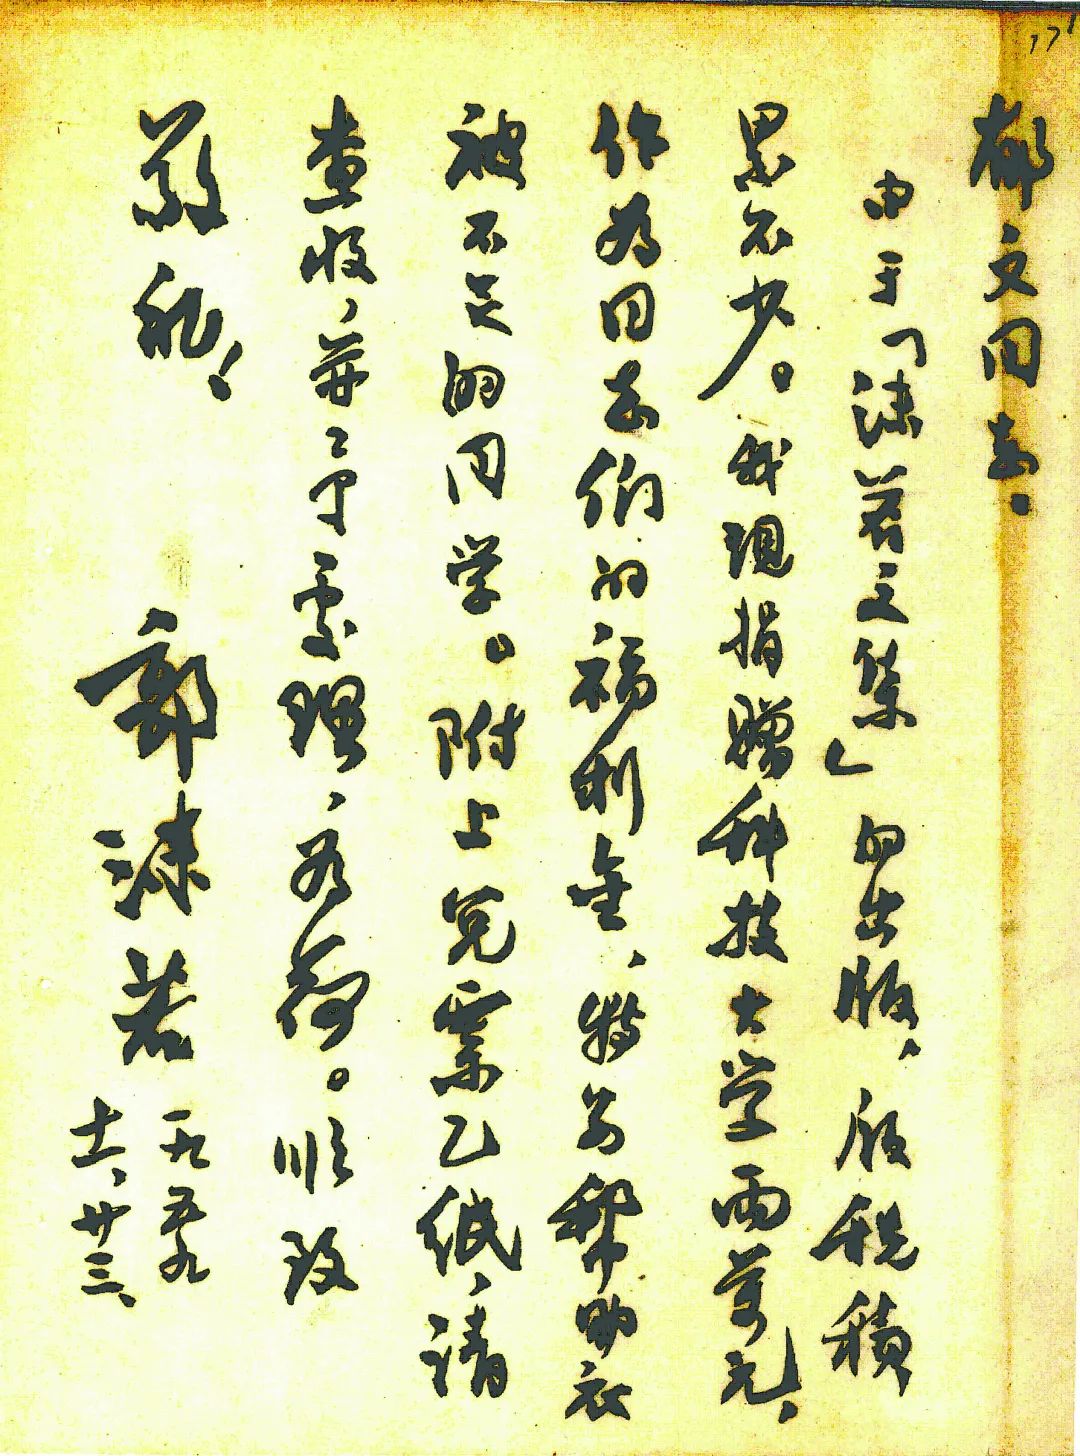 171
郁文同志。
由于「沫若文集」的出版，版税积
累不少。我现捐赠科技大学两万元，
作为同志们的福利金，特别帮助衣
被不足的同学。附上兑票乙纸，请
查收，并予处理，为荷。顺致
敬礼！
郭沫若
一九五九
十一、廿三、